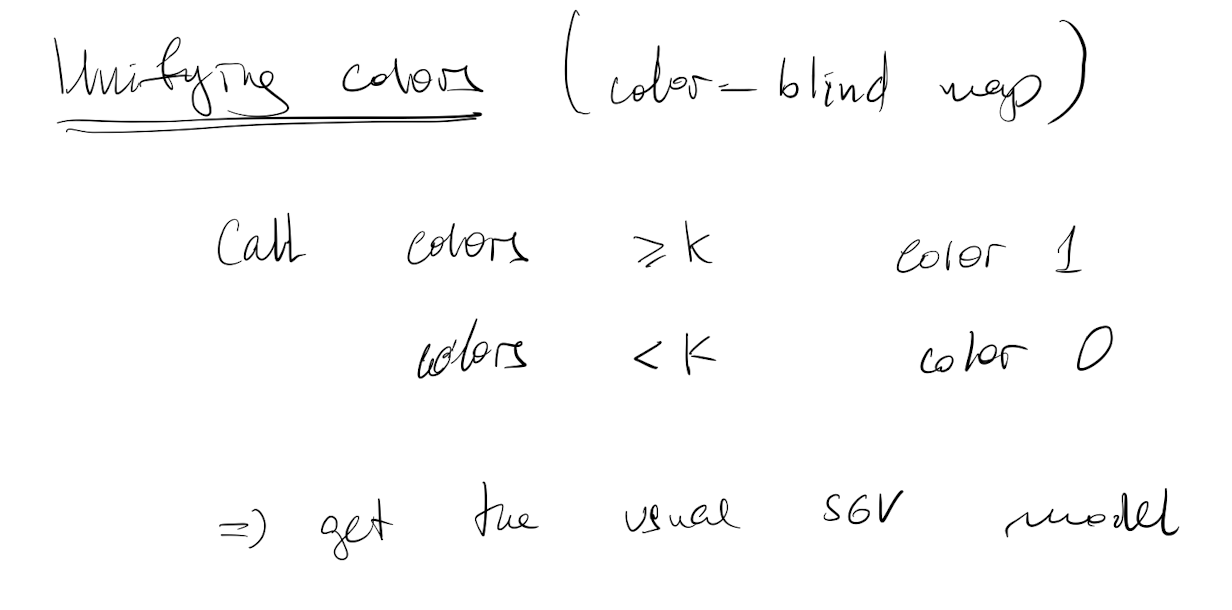 Unifying colors (color-blind map)
Call colors ≥ k color 1
colors < k color 0
⇒ get the usual S6V model